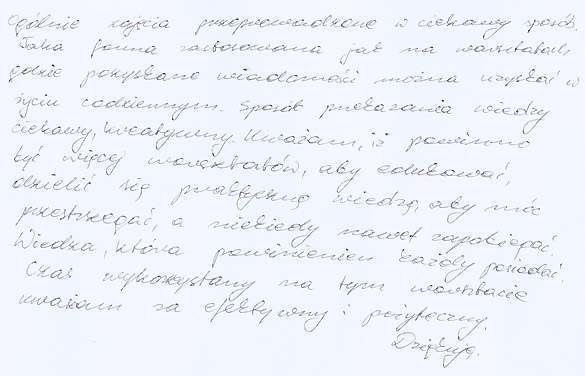 Ogólnie zajęcia przeprowadzone w ciekawy sposób.
Taka forma zastosowana jak na warsztatach
gdzie pozyskane wiadomości można uzyskać w
życiu codziennym. Sposób przekazania wiedzy
ciekawy, kreatywny. Uważam, iż powinno
być więcej warsztatów, aby edukować,
dzielić się praktyczną wiedzą, aby móc
przestrzegać, a niekiedy nawet zapobiegać.
Wiedza, która powinienien każdy posiadać.
Czas wykorzystany na tym warsztacie
uważam za efektywny i pożyteczny.
Dziękuję.